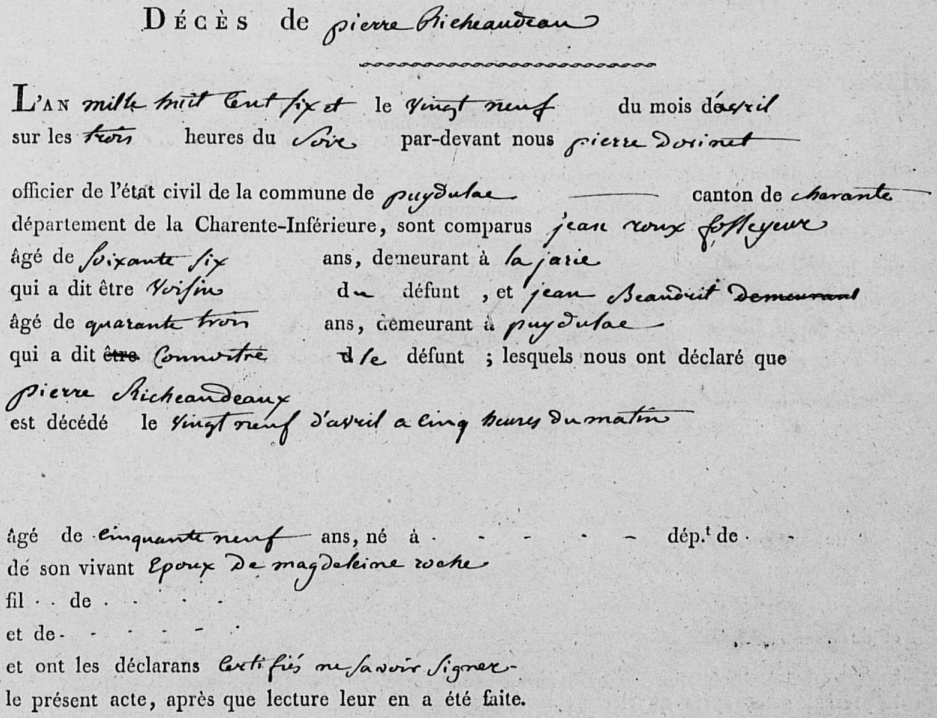 DÉCÈS de pierre Richeaudeau
L'AN mille huit Cent six et le vingt neuf du mois d'avril
sur les trois heures du Soir par-devant nous pierre Dorinet
officier de l'état civil de la commune de puydulac canton de charante
département de la Charente-Inférieure, sont comparus jean roux fossoyeur
âgé de soixante six ans, demeurant à la jarie
qui a dit être voisin du défunt, et jean Beaudrit demeurant
âgé de quarante trois ans, demeurant à puydulac
qui a dit être Connoitre le défunt ; lesquels nous ont déclaré que
pierre Richeaudeaux
est décédé le vingt neuf d'avril a cinq heures du matin
âgé de cinquante neuf ans, né à - - - - dép.t de - -
de son vivant Epoux De magdeleine roche
fil . . de . . . . .
et de - - - - -
et ont les déclarans Certifiés ne savoir signer -
le présent acte, après que lecture leur en a été faite.